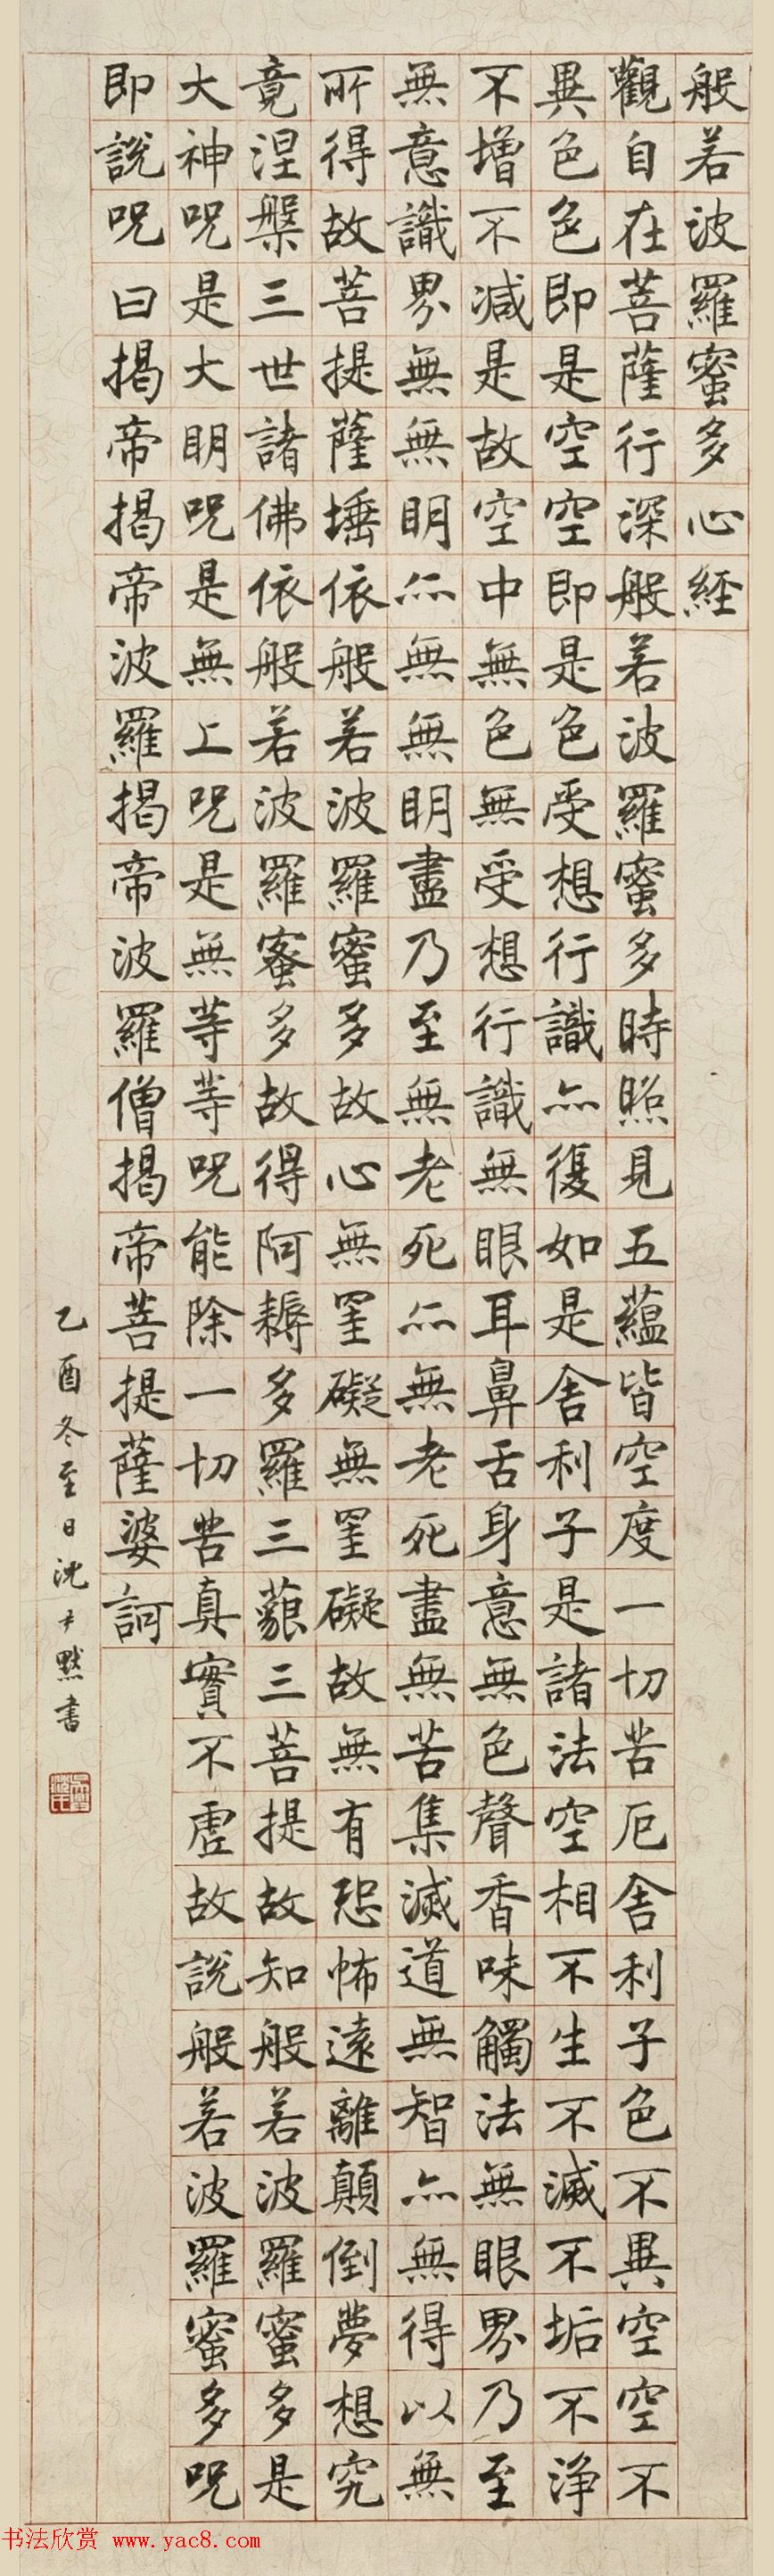 般若波羅蜜多心經
觀自在菩薩行深般若波羅蜜多時照見五蘊皆空度一切苦厄舍利子色不異空空不
異色色即是空空即是色受想行識亦復如是舍利子是諸法空相不生不滅不垢不淨
不增不減是故空中無色無受想行識無眼耳鼻舌身意無色聲香味觸法無眼界乃至
無意識界無無明亦無無明盡乃至無老死亦無老死盡無苦集滅道無智亦無得以無
所得故菩提薩埵依般若波羅蜜多故心無罣礙無罣礙故無有恐怖遠離顛倒夢想究
竟涅槃三世諸佛依般若波羅蜜多故得阿耨多羅三藐三菩提故知般若波羅蜜多是
大神呪是大明呪是無上呪是無等等呪能除一切苦真實不虛故說般若波羅蜜多呪
即說呪曰揭帝揭帝波羅揭帝波羅僧揭帝菩提薩婆訶
乙酉冬至日沈尹默書
吳興沈氏
书法欣赏 www.yac8.com